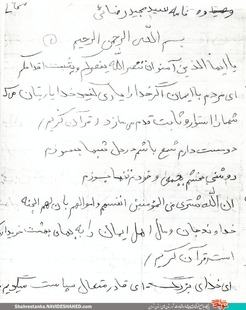 وصیت نامه سید مجید رضائی
بسم الله الرحمن الرحیم
یا ایها الذین آمنوا ان تنصر الله ینصرکم و یثبت اقدامکم
ای مردم با ایمان اگر خدا را یاری کنید خدا یارتان می‌کند
شما را استوار و ثابت قدم می‌سازد قرآن کریم
دوست دارم شمع باشم در دل شبها بسوزم
روشنی بخشم به جمعی و خود تنها بسوزم
ان الله اشتری من المؤمنین انفسهم و اموالهم بان لهم الجنه
خداوند جان و مال اهل ایمان را به بهای بهشت خریداری
است قرآن کریم
ای خدای بزرگ ای قادر متعال سپاست میگویم
Shahrestanha.NAVIDESHAHED.com